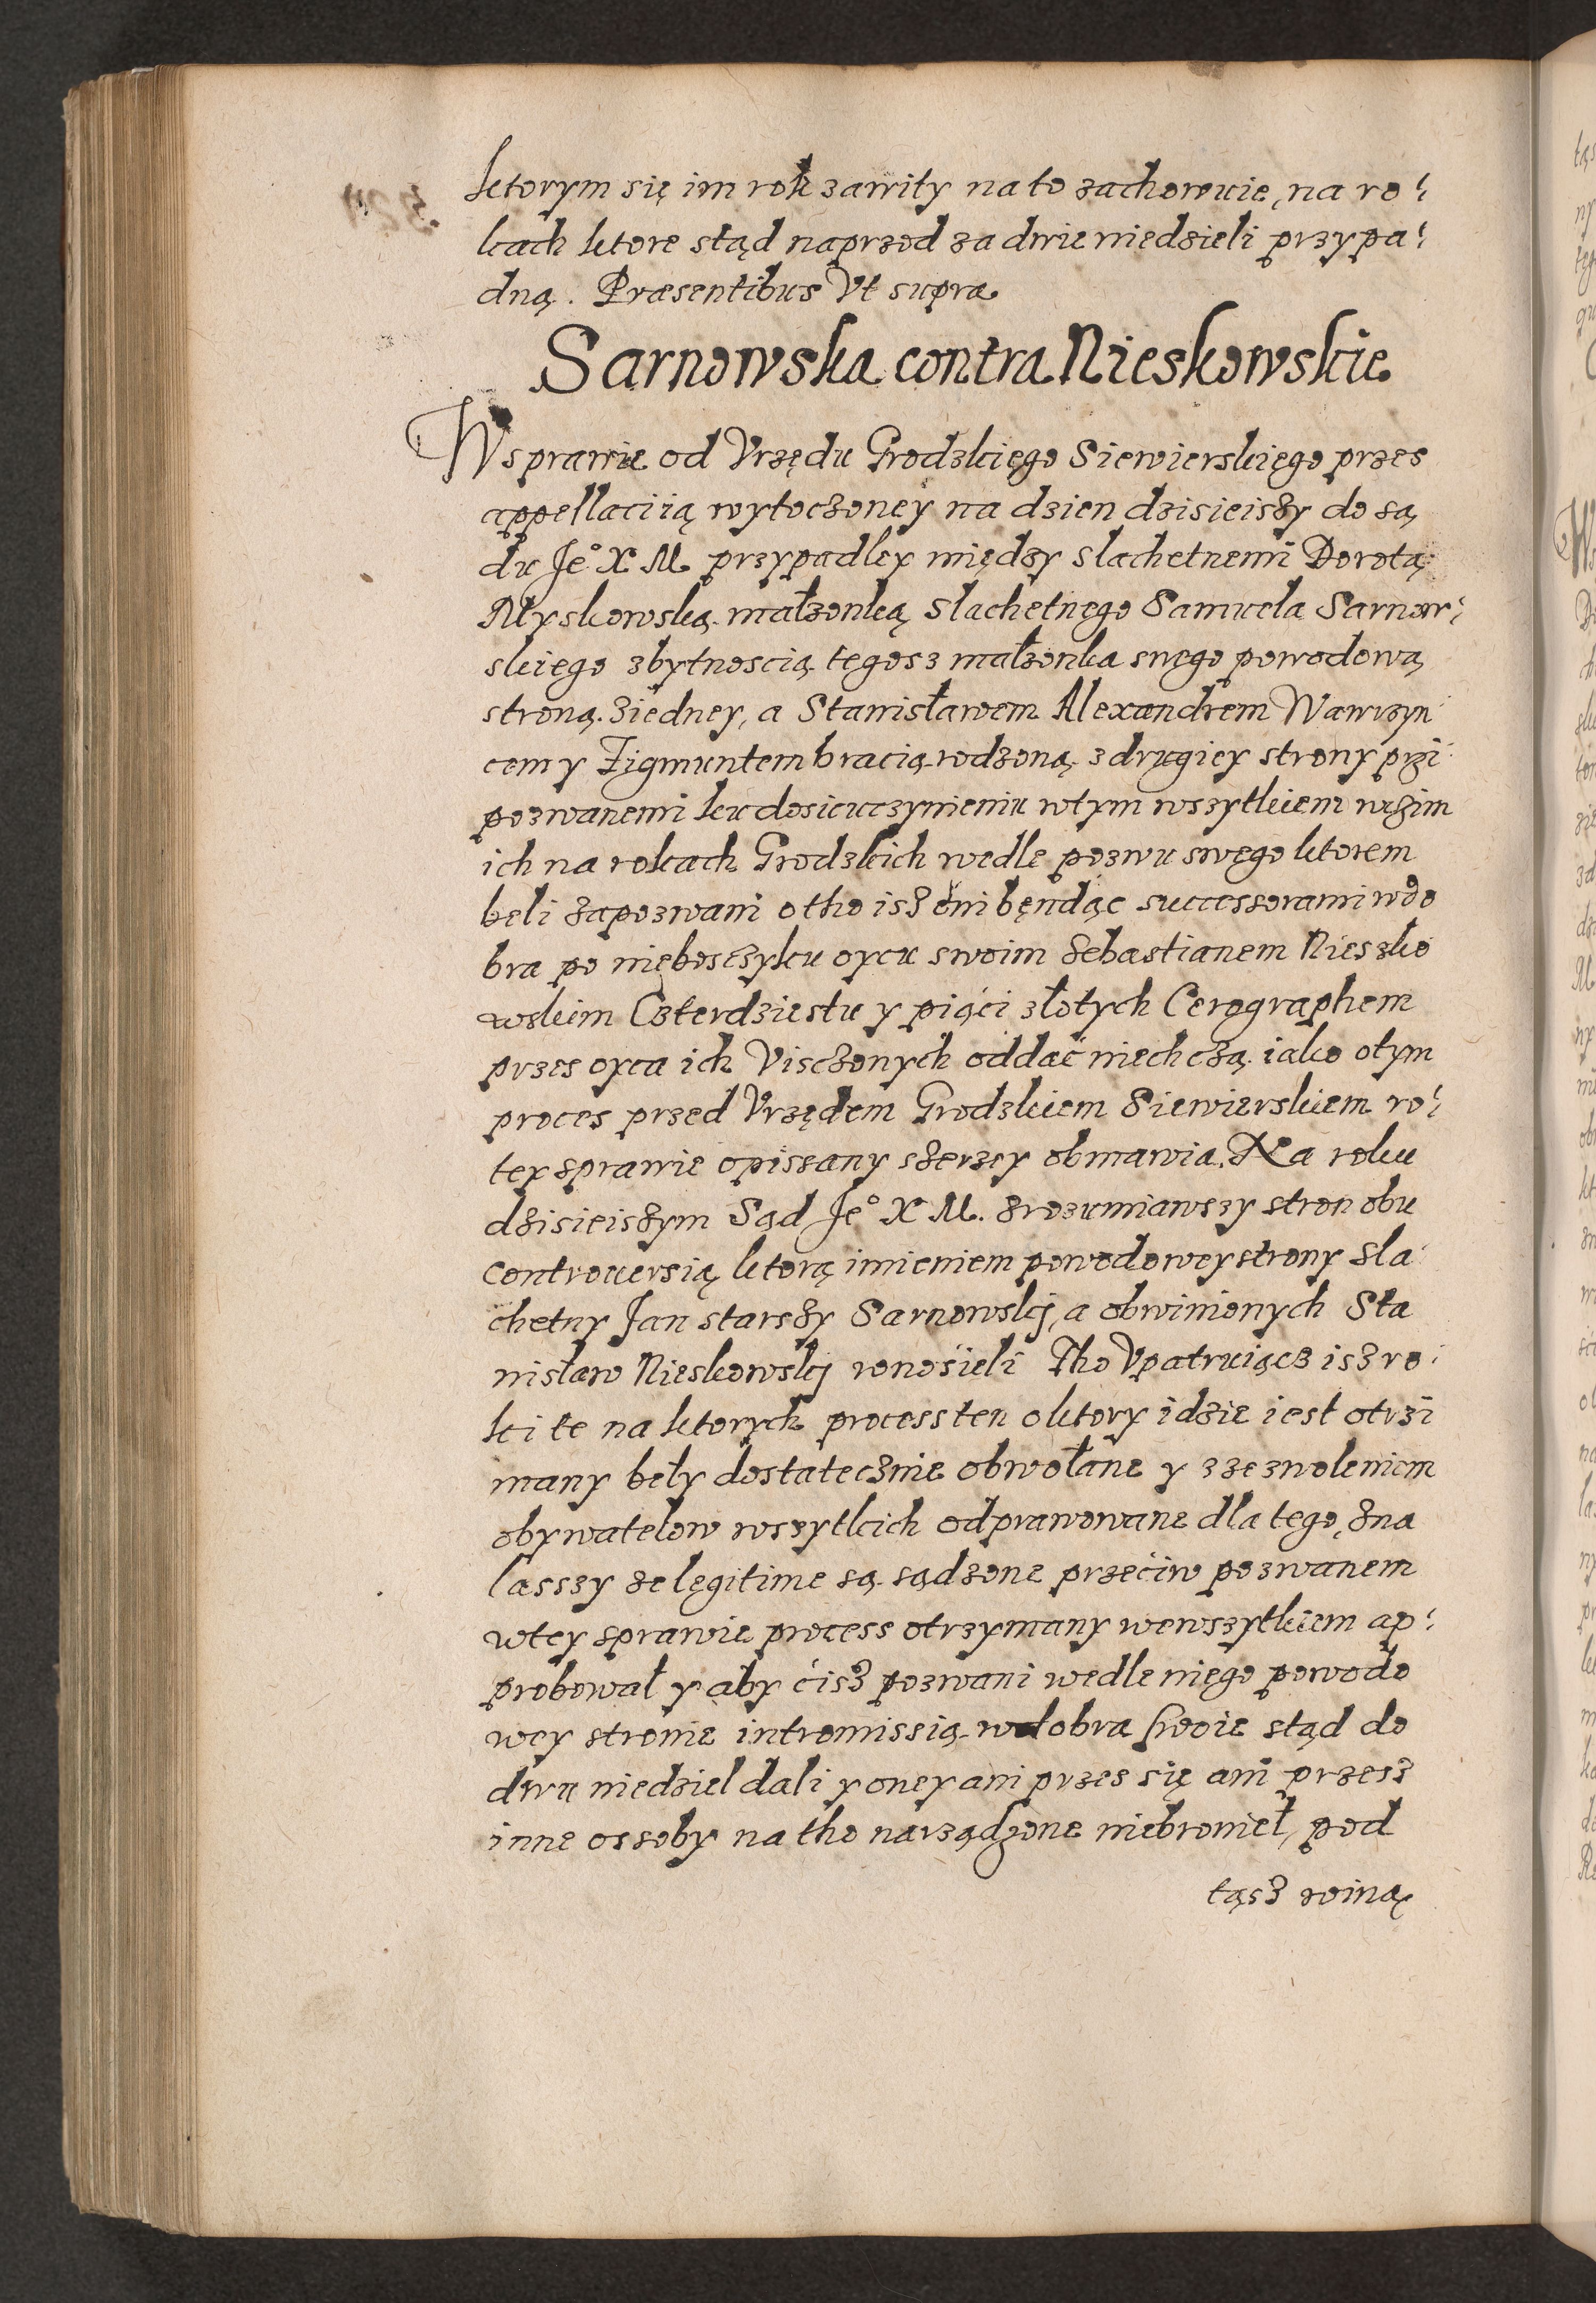 ktorym się im rok zawity na to zachowuie, na ro-
kach ktore stąd naprzod za dwie niedzieli przypa-
dną. Præsentibus Vt supra
Sarnowska contra Nieskowskie
W sprawie od Vrzędu Grodzkięgo Siewierskięgo przes
appellaciią wytoczoney na dzien dzisieiszy do są
du Je° X M. przypadley między slachetnemi Dorotą
Myskowską małzonką slachetnego Samuela Sarnow-
skięgo zbytnoscią tegosz małzonka swęgo powodową
stroną ziedney, a Stanisławem Alexandrem Wawrzyn
cem y Zigmuntem bracią rodzoną z drugiey strony przi
pozwanemi ku dosicuczynieniu wtym wszytkiem
ich na rokach Grodzkich wedle pozwu swęgo ktorem
beli zapozwani otho isz oni będąc successorami wdo
bra po nięboszczyku oycu swoim Sebastianem Nieszko
wskim Czterdziestu y piąći złotych Cerographem
przes oyca ich Visczonych oddać niechczą iako otym
proces przed Vrzędem Grodzkiem Siewierskiem ro-
tey sprawie opissany szerzey obmawia. Na roku
dzisieiszym Sąd Je° X M. zrozumiawszy stron obu
Controuersią ktorą imieniem powodowey strony Sla
chetny Jan starszy Sarnowskj, a obwinionych Sta
nisław Nieskowskj wnośieli Tho Vpatruiącz isz ro-
ki te na ktorych process ten o ktory idzie iest otrzi
many beły dostatecznie obwołane y z zezwoleniem
obywatelow wszytkich odprawowane dla tego, zna
lasszy ze lęgitime są sądzone przećiw pozwanem
wtey sprawie process otrzymany wewszytkiem ap-
probował y aby ćisz pozwani wedle nięgo powodo
wey stronie intromissią w dobra swoie stąd do
dwu niedziel dali y oney ani przes się ani przesz
inne ossoby na tho narządzone niebronieł, pod
tąsz winą